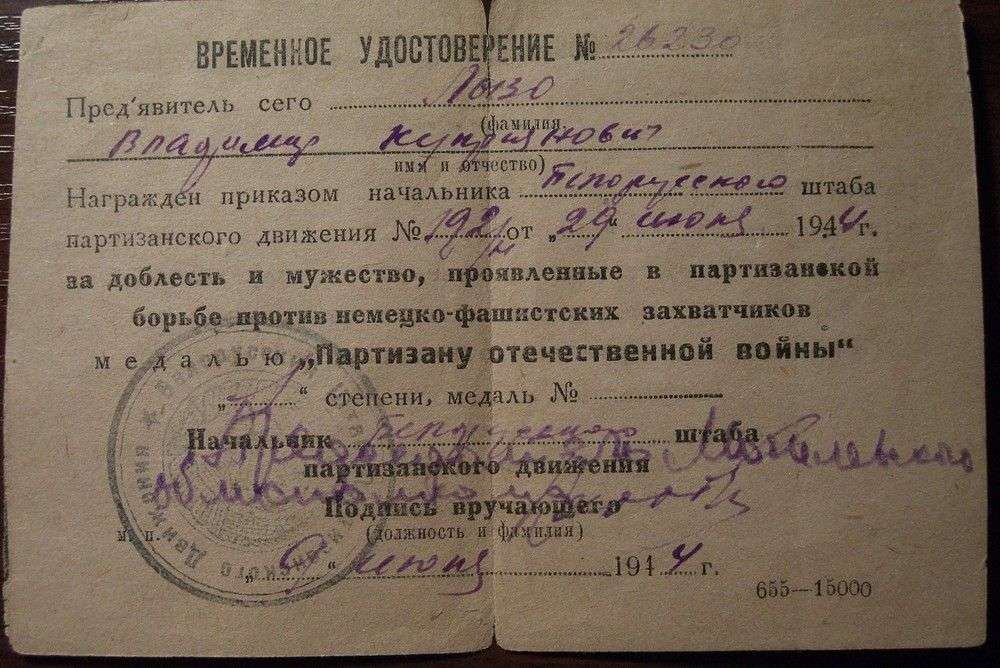 ВРЕМЕННОЕ УДОСТОВЕРЕНИЕ № 26230
Пред'явитель сего Лызо
(фамилия,
Владимир Куприянович
имя и отчество)
Награжден приказом начальника Белорусского штаба
партизанского движения № 192/н от „29“ июня 1944 г.
за доблесть и мужество, проявленные в партизанской
борьбе против немецко-фашистских захватчиков
медалью „Партизану отечественной войны“
„ “ степени, медаль №
Начальник Белорусского штаба
партизанского движения
Подпись вручающего
м. п. (должность и фамилия)
„ “ июня 1944 г.
655—15000